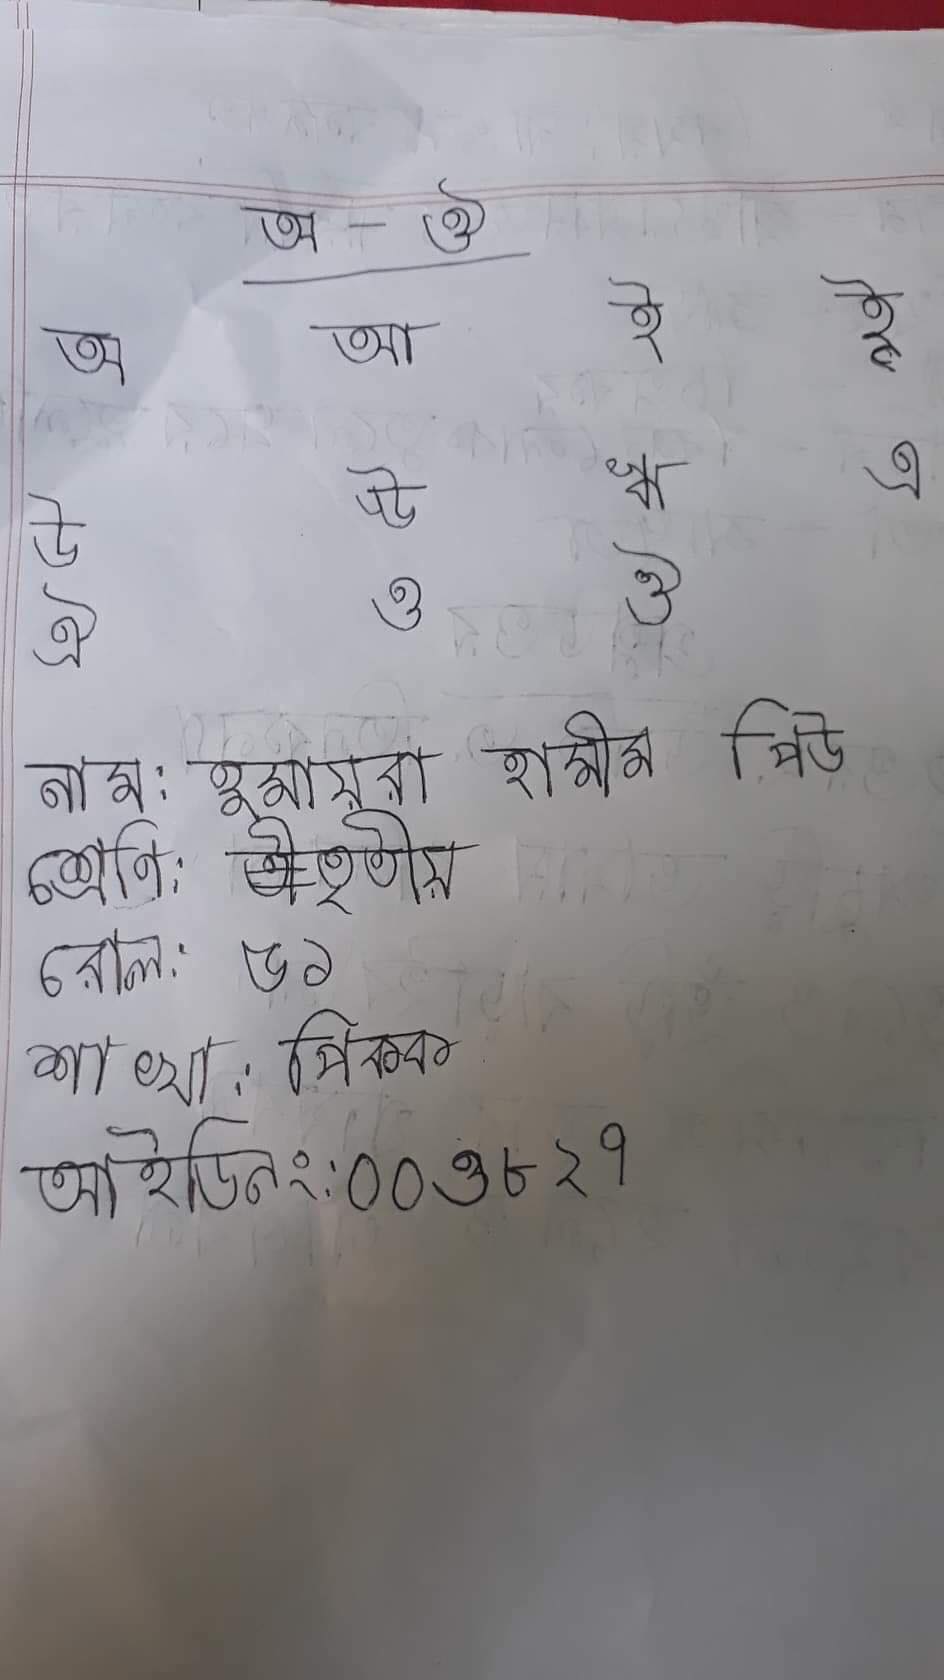 অ - ঔ
অ আ ই ঈ
উ ঊ ঋ এ
ঐ ও ঔ
নাম: হুমায়রা হামীম পিউ
শ্রেণি: তৃতীয়
রোল: ৬১
শাখা: পিকক
আইডিনং: ০০৩৮২৭